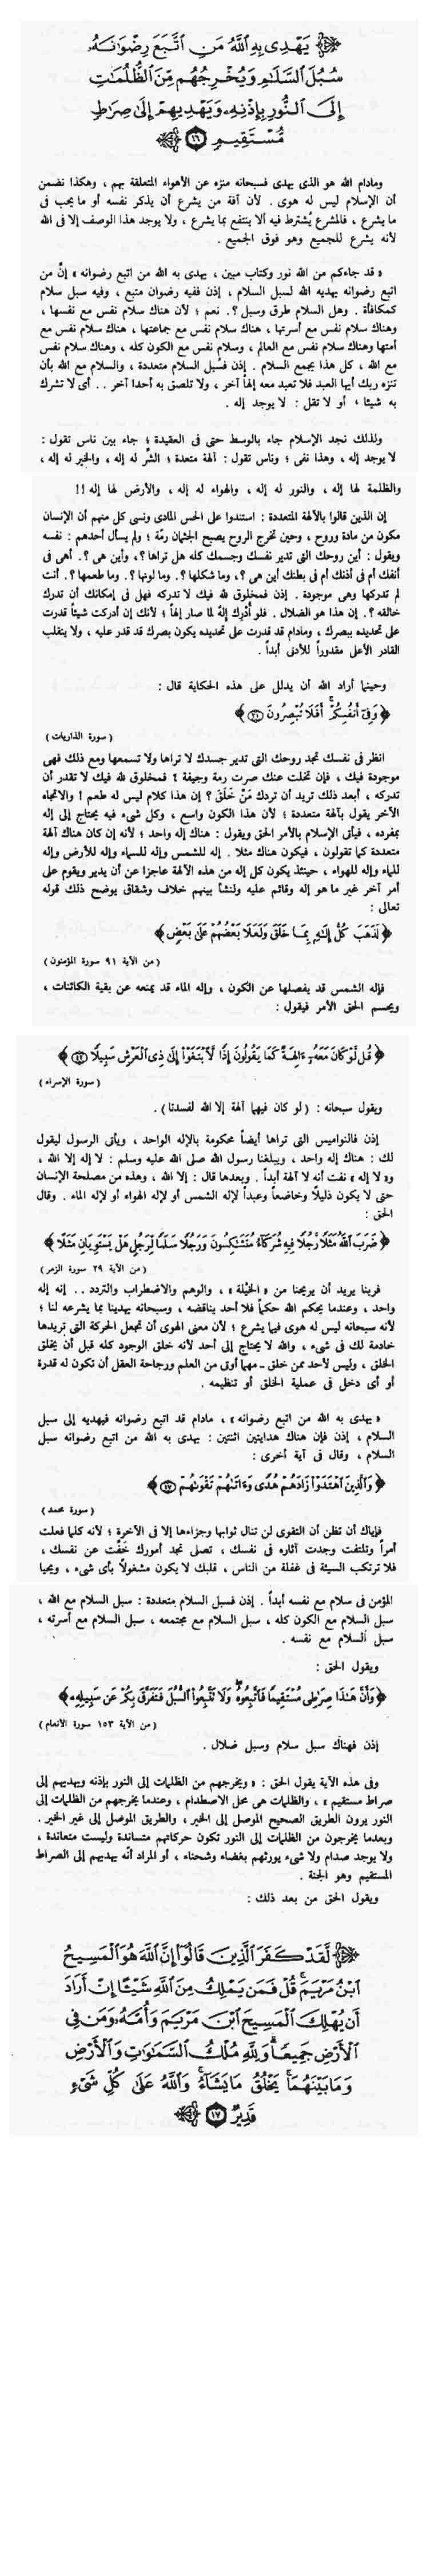 يَهْدِى بِهِ ٱللَّهُ مَنِ ٱتَّبَعَ رِضْوَٰنَهُۥ
سُبُلَ ٱلسَّلَٰمِ وَيُخْرِجُهُم مِّنَ ٱلظُّلُمَٰتِ
إِلَى ٱلنُّورِ بِإِذْنِهِۦ وَيَهْدِيهِمْ إِلَىٰ صِرَٰطٍ
مُّسْتَقِيمٍ ١٦
ومادام الله هو الذى يهدى فسبحانه منزه عن الأهواء المتعلقة بهم ، وهكذا نضمن
أن الإسلام ليس له هوى . لأن آفة من يشرع أن يذكر نفسه أو ما يحب فى
ما يشرع ، فالمشرع يُشترط فيه ألا ينتفع بما يشرع ، ولا يوجد هذا الوصف إلا فى الله
لأنه يشرع للجميع وهو فوق الجميع .
« قد جاءكم من الله نور وكتاب مبين ، يهدى به الله من اتبع رضوانه » إنَّ من
اتبع رضوانه يهديه الله لسبل السلام ، إذن ففيه رضوان متبع ، وفيه سبل سلام
كمكافأة . وهل السلام طرق وسبل ؟. نعم ؛ لأن هناك سلام نفس مع نفسها ،
وهناك سلام نفس مع أسرتها ، هناك سلام نفس مع جماعتها ، هناك سلام نفس مع
أمتها وهناك سلام نفس مع العالم ، وسلام نفس مع الكون كله ، وهناك سلام نفس
مع الله ، كل هذا يجمع السلام . إذن فسُبل السلام متعددة ، والسلام مع الله بأن
تنزه ربك أيها العبد فلا تعبد معه إلهاً آخر ، ولا تلصق به أحدا آخر . . أى لا تشرك
به شيئا ، أو لا تقل : لا يوجد إله .
ولذلك نجد الإسلام جاء بالوسط حتى فى العقيدة ؛ جاء بين ناس تقول :
لا يوجد إله ، وهذا نفى ؛ وناس تقول : آلهة متعدة ؛ الشَّر له إله ، والخير له إله ،
والظلمة لها إله ، والنور له إله ، والهواء له إله ، والأرض لها إله !!
إن الذين قالوا بالآلهة المتعددة : استندوا على الحس المادى ونسى كل منهم أن الإنسان
مكون من مادة وروح ، وحين تخرج الروح يصبح الجثمان رمّة ؛ ولم يسأل أحدهم : نفسه
ويقول : أين روحك التى تدير نفسك وجسمك كله هل تراها ؟، وأين هى ؟. أهى فى
أنفك أم فى أذنك أم فى بطنك أين هى ؟، وما شكلها ؟. وما لونها ؟. وما طعمها ؟. أنت
لم تدركها وهى موجودة . إذن فمخلوق لله فيك لا تدركه فهل فى إمكانك أن تدرك
خالقه ؟. إن هذا هو الضلال . فلو أُدْرِك إلهٌ لما صار إلهاً ؛ لأنك إن أدركت شيئاً قدرت
على تحديده ببصرك ، ومادام قد قدرت على تحديده يكون بصرك قد قدر عليه ، ولا ينقلب
القادر الأعلى مقدوراً للأدنى أبداً .
وحينما أراد الله أن يدلل على هذه الحكاية قال :
﴿ وَفِىٓ أَنفُسِكُمْ ۚ أَفَلَا تُبْصِرُونَ ٢١ ﴾
( سورة الذاريات )
انظر فى نفسك تجد روحك التى تدير جسدك لا تراها ولا تسمعها ومع ذلك فهى
موجودة فيك ، فإن تخلت عنك صرت رمة وجيفة ؟ فمخلوق لله فيك لا تقدر أن
تدركه ، أبعد ذلك تريد أن تردك مَنْ خَلَقَ ؟ إن هذا كلام ليس له طعم ! والاتجاه
الآخر يقول بآلهة متعددة ؛ لأن هذا الكون واسع ، وكل شىء فيه يحتاج إلى إله
بمفرده ، فيأتى الإسلام بالأمر الحق ويقول : هناك إله واحد ؛ لأنه إن كان هناك آلهة
متعددة كما تقولون ، فيكون هناك مثلا . إله للشمس وإله للسماء وإله للأرض وإله
للماء وإله للهواء ، حينئذ يكون كل إله من هذه الآلهة عاجزا عن أن يدير ويقوم على
أمر آخر غير ما هو إله وقائم عليه ولنشأ بينهم خلاف وشقاق يوضح ذلك قوله
تعالى :
﴿ لَّذَهَبَ كُلُّ إِلَٰهٍۭ بِمَا خَلَقَ وَلَعَلَا بَعْضُهُمْ عَلَىٰ بَعْضٍ ﴾
( من الآية ٩١ سورة المؤمنون )
فإله الشمس قد يفصلها عن الكون ، وإله الماء قد يمنعه عن بقية الكائنات ،
ويحسم الحق الأمر فيقول :
﴿ قُل لَّوْ كَانَ مَعَهُۥٓ ءَالِهَةٌ كَمَا يَقُولُونَ إِذًا لَّٱبْتَغَوْا۟ إِلَىٰ ذِى ٱلْعَرْشِ سَبِيلًا ٤٢ ﴾
( سورة الإسراء )
ويقول سبحانه : ( لو كان فيهما آلهة إلا الله لفسدتا ) .
إذن فالنواميس التى تراها أيضاً محكومة بالإله الواحد ، ويأتى الرسول ليقول
لك : هناك إله واحد ، ويبلغنا رسول الله صلى الله عليه وسلم : لا إله إلا الله ،
و« لا إله » نفت أنه لا آلهة أبداً . وبعدها قال : إلا الله ، وهذه من مصلحة الإنسان
حتى لا يكون ذليلًا وخاضعاً وعبداً لإله الشمس أو لإله الهواء أو لإله الماء . وقال
الحق :
﴿ ضَرَبَ ٱللَّهُ مَثَلًا رَّجُلًا فِيهِ شُرَكَآءُ مُتَشَٰكِسُونَ وَرَجُلًا سَلَمًا لِّرَجُلٍ هَلْ يَسْتَوِيَانِ مَثَلًا ﴾
( من الآية ٢٩ سورة الزمر )
فربنا يريد أن يريحنا من « الخَيْلة » ، والوهم والاضطراب والتردد . . إنه إله
واحد ، وعندما يحكم الله حكماً فلا أحد يناقضه ، وسبحانه يهدينا بما يشرعه لنا ؛
لأنه سبحانه ليس له هوى فيما يشرع ؛ لأن معنى الهوى أن تجعل الحركة التى تريدها
خادمة لك فى شىء ، والله لا يحتاج إلى أحد لأنه خلق الوجود كله قبل أن يخلق
الخلق ، وليس لأحد ممن خلق - مهما أوتى من العلم ورجاحة العقل أن تكون له قدرة
أو أى دخل فى عملية الخلق أو تنظيمه .
« يهدى به الله من اتبع رضوانه » ، مادام قد اتبع رضوانه فيهديه إلى سبل
السلام ، إذن فإن هناك هدايتين اثنتين : يهدى به الله من اتبع رضوانه سبل
السلام ، وقال فى آية أخرى :
﴿ وَٱلَّذِينَ ٱهْتَدَوْا۟ زَادَهُمْ هُدًى وَءَاتَىٰهُمْ تَقْوَىٰهُمْ ١٧ ﴾
( سورة محمد )
فإياك أن تظن أن التقوى لن تنال ثوابها وجزاءها إلا فى الآخرة ؛ لأنه كلما فعلت
أمراً وتلتفت وجدت آثاره فى نفسك ، تصلى تجد أمورك خَفَّت عن نفسك ،
فلا ترتكب السيئة فى غفلة من الناس ، قلبك لا يكون مشغولًا بأى شىء ، ويحيا
المؤمن فى سلام مع نفسه أبداً . إذن فسبل السلام متعددة : سبل السلام مع الله ،
سبل السلام مع الكون كله ، سبل السلام مع مجتمعه ، سبل السلام مع أسرته ،
سبل السلام مع نفسه .
ويقول الحق :
﴿ وَأَنَّ هَٰذَا صِرَٰطِى مُسْتَقِيمًا فَٱتَّبِعُوهُ ۖ وَلَا تَتَّبِعُوا۟ ٱلسُّبُلَ فَتَفَرَّقَ بِكُمْ عَن سَبِيلِهِۦ ﴾
( من الآية ١٥٣ سورة الأنعام )
إذن فهناك سبل سلام وسبل ضلال .
وفى هذه الآية يقول الحق : « ويخرجهم من الظلمات إلى النور بإذنه ويهديهم إلى
صراط مستقيم » ، والظلمات هى محل الاصطدام ، وعندما يخرجهم من الظلمات إلى
النور يرون الطريق الصحيح الموصل إلى الخير ، والطريق الموصل إلى غير الخير .
وبعدما يخرجون من الظلمات إلى النور تكون حركاتهم متساندة وليست متعاندة ،
ولا يوجد صدام ولا شىء يورثهم بغضاء وشحناء ، أو المراد أنّه يهديهم إلى الصراط
المستقيم وهو الجنة .
ويقول الحق من بعد ذلك :
لَّقَدْ كَفَرَ ٱلَّذِينَ قَالُوٓا۟ إِنَّ ٱللَّهَ هُوَ ٱلْمَسِيحُ
ٱبْنُ مَرْيَمَ ۚ قُلْ فَمَن يَمْلِكُ مِنَ ٱللَّهِ شَيْـًٔا إِنْ أَرَادَ
أَن يُهْلِكَ ٱلْمَسِيحَ ٱبْنَ مَرْيَمَ وَأُمَّهُۥ وَمَن فِى
ٱلْأَرْضِ جَمِيعًا ۗ وَلِلَّهِ مُلْكُ ٱلسَّمَٰوَٰتِ وَٱلْأَرْضِ
وَمَا بَيْنَهُمَا ۚ يَخْلُقُ مَا يَشَآءُ ۚ وَٱللَّهُ عَلَىٰ كُلِّ شَىْءٍ
قَدِيرٌ ١٧